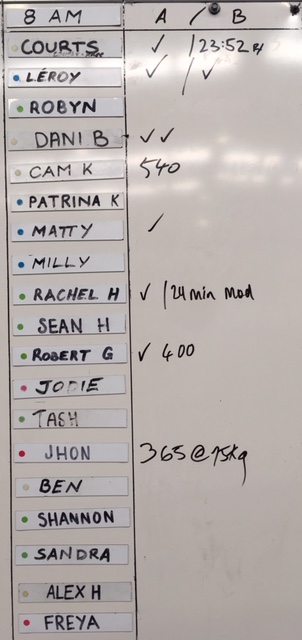 8 AM A / B
COURTS ✓ / 23:52
LEROY ✓ / ✓
ROBYN
DANI B ✓ ✓
CAM K 540
PATRINA K
MATTY ✓
MILLY
RACHEL H ✓ / 24 min Mod
SEAN H
ROBERT G ✓ 400
JODIE
TASH
JHON 365@75kg
BEN
SHANNON
SANDRA
ALEX H
FREYA